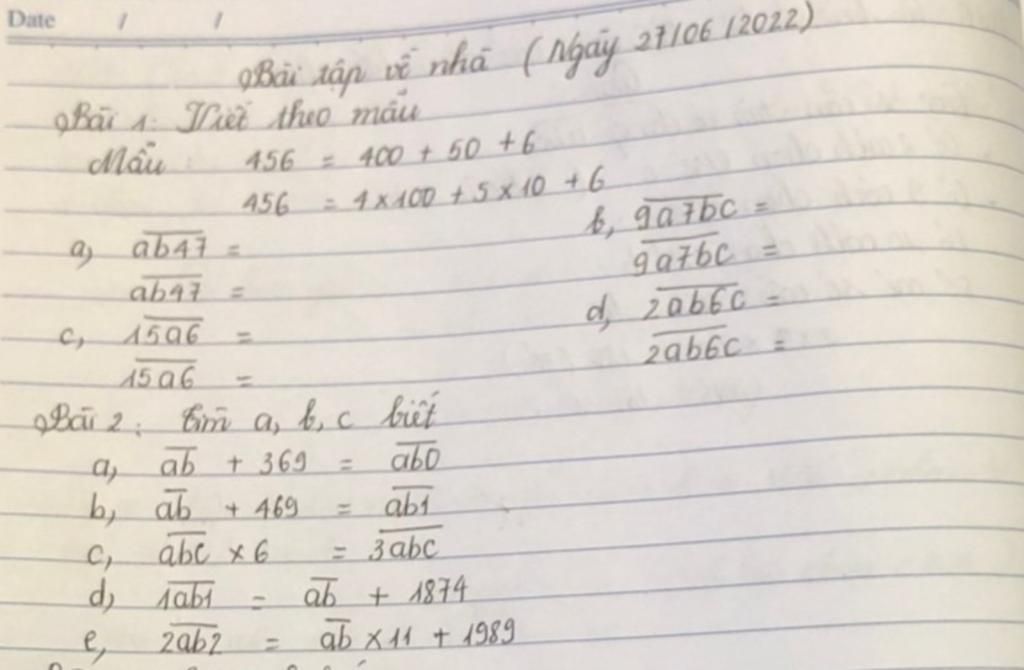 Date / /
Bài tập về nhà (Ngày 27/06/2022)
Bài 1: Viết theo mẫu
Mẫu: 456 = 400 + 50 + 6
456 = 4 x 100 + 5 x 10 + 6
a, a̅b̅4̅7̅ =
a̅b̅4̅7̅ =
b, 9̅a̅7̅b̅c̅ =
9̅a̅7̅b̅c̅ =
c, 1̅5̅a̅6̅ =
1̅5̅a̅6̅ =
d, 2̅a̅b̅6̅c̅ =
2̅a̅b̅6̅c̅ =
Bài 2: tìm a, b, c biết
a, a̅b̅ + 369 = a̅b̅0̅
b, a̅b̅ + 469 = a̅b̅1̅
c, a̅b̅c̅ x 6 = 3̅a̅b̅c̅
d, 1̅a̅b̅1̅ = a̅b̅ + 1874
e, 2̅a̅b̅2̅ = a̅b̅ x 11 + 1989